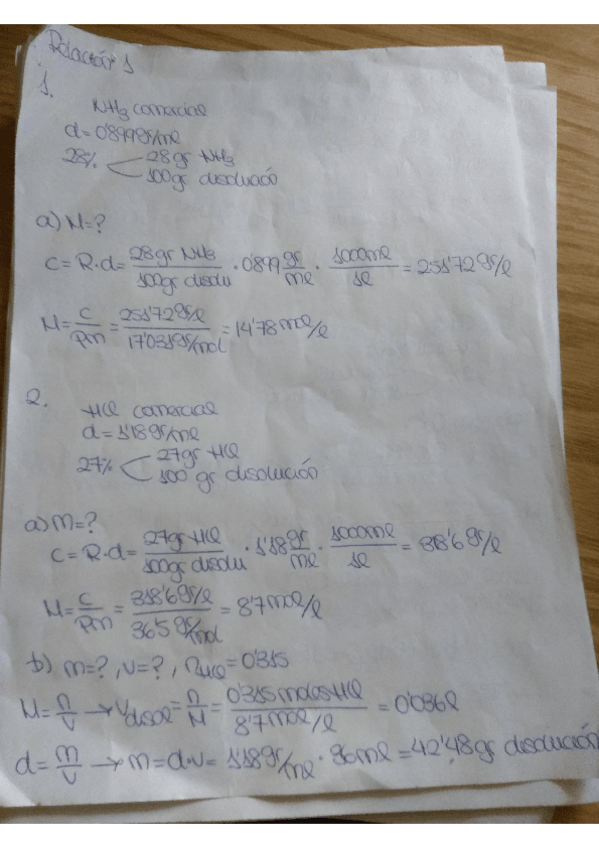 Relación 1
1.
NH3 comercial
d= 0'899gr/ml
28% 28gr NH3
100gr disolución
a) M=?
C = R·d = 28gr NH3 / 100gr disolu · 0'899 gr/ml · 1000ml / 1l = 251'72 gr/l
M = C/Pm = 251'72gr/l / 17'031gr/mol = 14'78 mol/l
2.
HCl comercial
d= 1'18gr/ml
27% 27gr HCl
100 gr disolución
a) M=?
C = R·d = 27gr HCl / 100gr disolu · 1'18 gr/ml · 1000ml / 1l = 318'6 gr/l
M = C/Pm = 318'6gr/l / 36'5 gr/mol = 8'7 mol/l
b) m=?, v=?, nHCl = 0'315
M = n/V → Vdisol = n/M = 0'315 moles HCl / 8'7 mol/l = 0'036l
d = m/V → m = d·v = 1'18gr/ml · 36ml = 42'48gr disolución